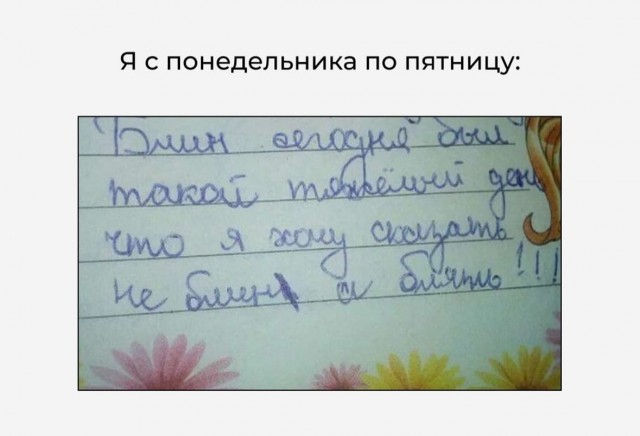 Я с понедельника по пятницу:
Блин сегодня был
такой тяжёлый день
что я хочу сказать
не блин а блять!!!